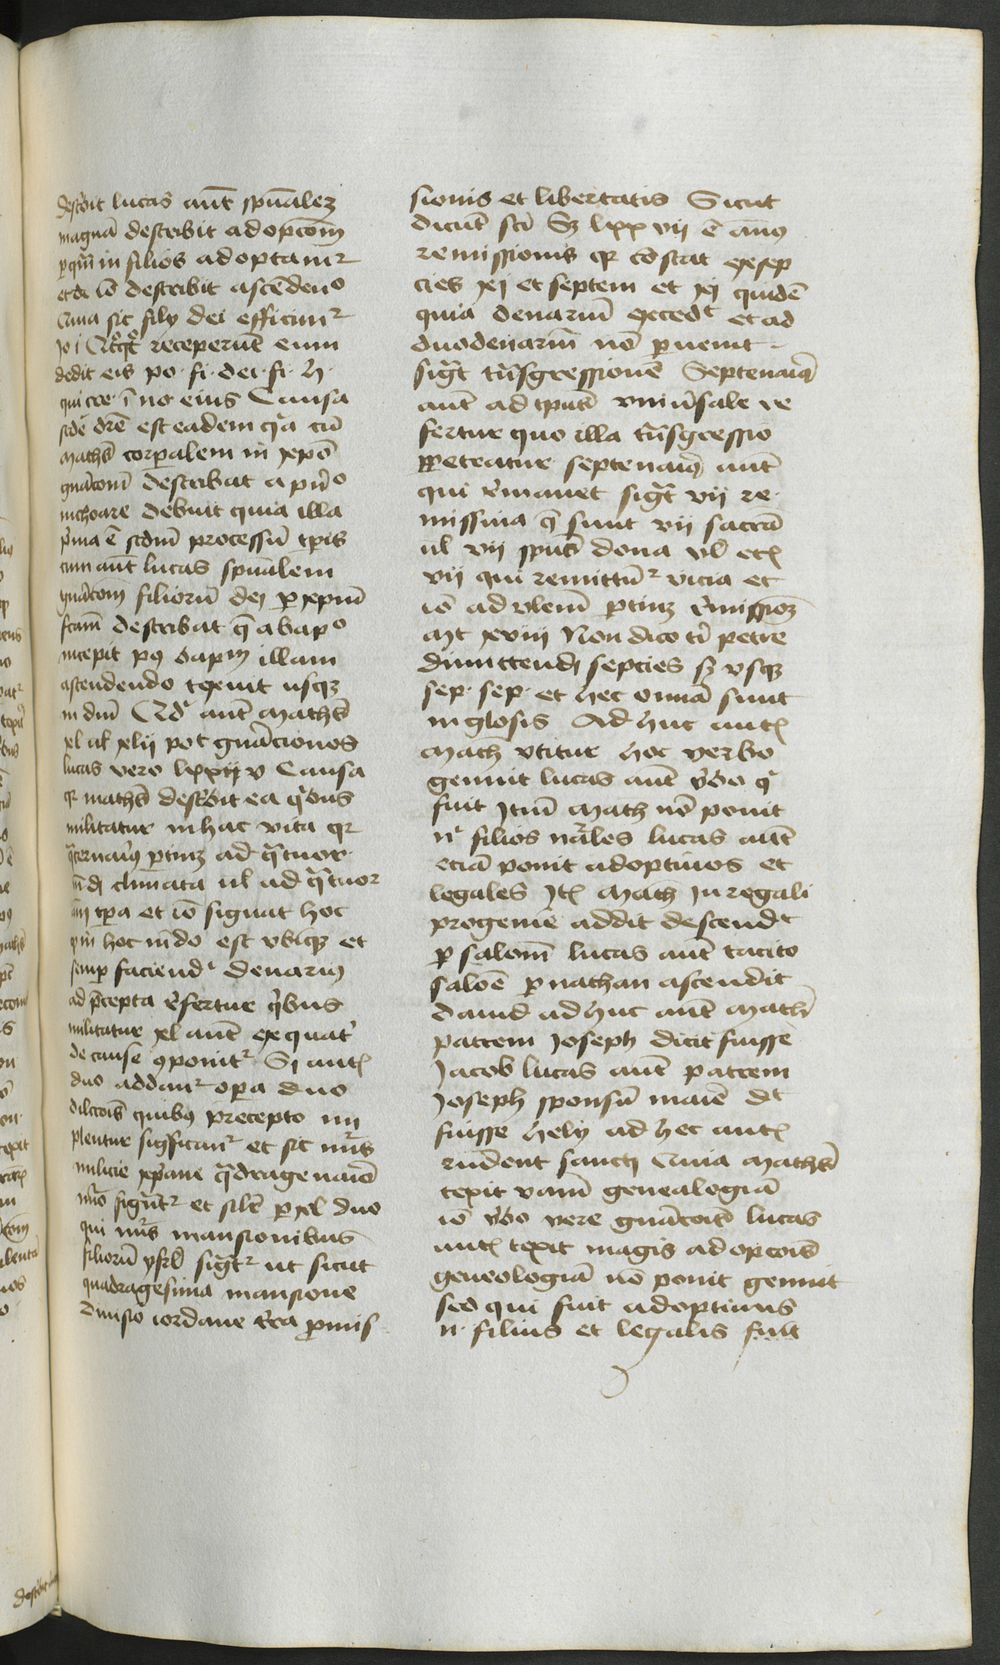 descbit lucas aūt spūalez
magnā describit adopcōm
p quā in filios adoptamur
et io describit ascēdendo
Quia sic filij dei efficimur
Jo i Qtqt receperūt eum
dedit eis po· fi· dei· fi· h·
qui cre· ī no eius Causa
scđe drē est eadem qa cū
matheus corpalem in xpo
gnacōm describat a prio
inchoare debuit quia illa
prima ē scdm processū tpis
cum aūt lucas spūalem
gnacōm filiorū dei p xpm
fcām describat q̄ a bapo
incepit po bapm illam
ascendendo texuit usqz
in dm Qd aūt matheus
xl ul xlii pot gnaciones
lucas vero lxxvii Causa
qr matheus descbit ea qbus
militatur in hac vita qr
qternaius ptinz ad qtuor
mdi climata ul ad qtuor
āni tpa et io signat hoc
qm hoc mdo est vbiqz et
semp faciendū denarius
ad pcepta refertur qbus
militatur xl aūt ex quatr
decause oponitr Si autē
duo addantr opa duo
dilcōis quibus precepto im
plentur sigficantr et sic nrus
milicie xpiane qdragenaio
nro figuratr et silr p xl duo
qui nrus mansionibus
filiorū isrl sigtr ut sicut
quadragesima mansione
diuiso iordane tra pmis
sionis et libertatis Sicut
dicūt sci Sz lxx vii ē anus
remissionis qr cōstat ex sep
cies xi et septem et xi quidē
quia denariū excedt et ad
duodenariū nō puenit
sigt tnsgressionē Septenaiqz
aūt ad tputs vniusale re
fertur quo illa tnsgressio
ppetratur septenaiqz aūt
qui rmanet sigt vii re·
missiua q̄ sunt vii sacrā
ul vii spus dona vl etē
vii qui remittūr vicia et
io ad vlem ptinz rmissioz
Mt xviii Non dico ti petre
dimittendi septies sz vsqz
sep· sep· et hec omnia sunt
in glosis Ad huc autē
math vtitur hoc verbo
genuit lucas aūt vbo q
fuit Jtm math nō ponit
nr filios nrales lucas aūt
eciā ponit adoptiuos et
legales Jtē math in regali
progenie addit descendt
p salom lucas aūt tacito
saloē p nathan ascendit
dauid ad huc aūt math
patrem Joseph dicit fuisse
Jacob lucas aūt patrem
Joseph sponsū maie dt
fuisse hely ad hec autē
rndent sancti Quia matheus
texit vam genealogiā
io vbo vere gnacōis lucas
autē texit magis adopcōis
geneologiā nō ponit genuit
sed qui fuit adoptiuus
n· filius et legalis fuit